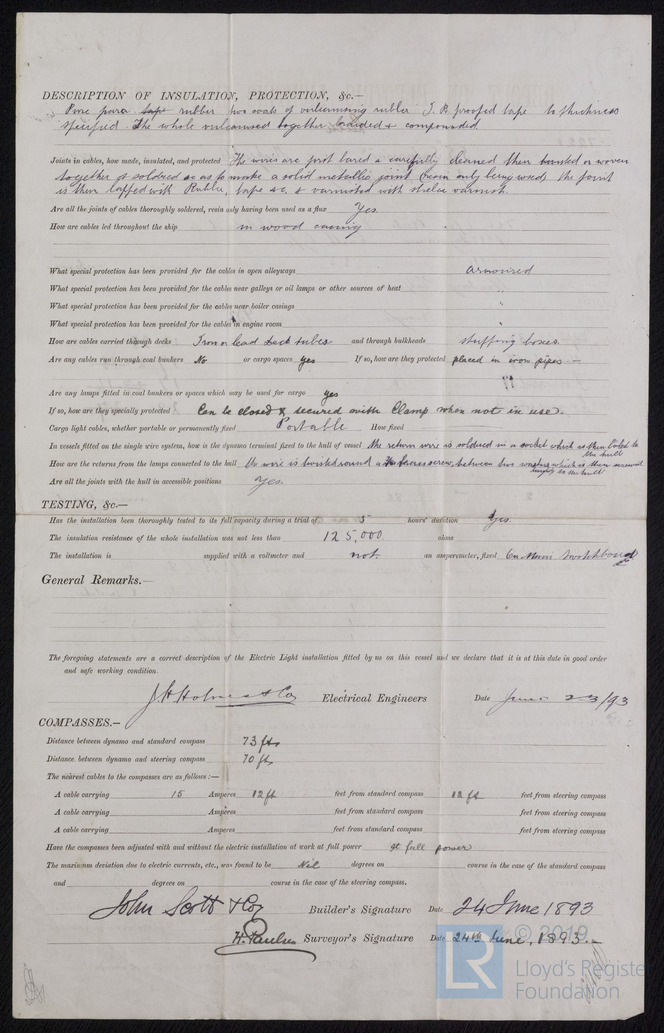 DESCRIPTION OF INSULATION, PROTECTION, &c.—
Pure para tape rubber two coats of vulcanising rubber I.R. proofed tape to thickness
specified. The whole vulcanised together braided & compounded.
Joints in cables, how made, insulated, and protected The wires are first bared & carefully cleaned then or woven
together & soldered so as to make a solid metallic joint resin only being used, the joint
is then lapped with Rubber, tape &c. & varnished with shelac varnish.
Are all the joints of cables thoroughly soldered, resin only having been used as a flux Yes
How are cables led throughout the ship in wood casing
What special protection has been provided for the cables in open alleyways armoured
What special protection has been provided for the cables near galleys or oil lamps or other sources of heat "
What special protection has been provided for the cables near boiler casings "
What special protection has been provided for the cables in engine room "
How are cables carried through decks Iron or lead deck tubes and through bulkheads stuffing boxes
Are any cables run through coal bunkers No or cargo spaces yes If so, how are they protected placed in iron pipes —
Are any lamps fitted in coal bunkers or spaces which may be used for cargo yes
If so, how are they specially protected Can be closed & secured with Clamp when not in use.
Cargo light cables, whether portable or permanently fixed Portable How fixed
In vessels fitted on the single wire system, how is the dynamo terminal fixed to the hull of vessel the return wire is soldered in a socket which is then bolted to
the hull
How are the returns from the lamps connected to the hull the wire is twisted round a brass screw, between two washers which is then screwed
to the hull
Are all the joints with the hull in accessible positions Yes.
TESTING, &c.—
Has the installation been thoroughly tested to its full capacity during a trial of 5 hours' duration Yes.
The insulation resistance of the whole installation was not less than 125,000 ohms
The installation is supplied with a voltmeter and not. an amperemeter, fixed On Main Switchboard
General Remarks.—
The foregoing statements are a correct description of the Electric Light installation fitted by us on this vessel and we declare that it is at this date in good order
and safe working condition.
J H Holmes & Co Electrical Engineers Date June 23/93
COMPASSES.—
Distance between dynamo and standard compass 73 fts
Distance between dynamo and steering compass 70 fts
The nearest cables to the compasses are as follows:—
A cable carrying 15 Amperes 12 ft feet from standard compass 12 ft feet from steering compass
A cable carrying Amperes feet from standard compass feet from steering compass
A cable carrying Amperes feet from standard compass feet from steering compass
Have the compasses been adjusted with and without the electric installation at work at full power at full power
The maximum deviation due to electric currents, etc., was found to be Nil degrees on course in the case of the standard compass
and degrees on course in the case of the steering compass.
John Scott & Coy Builder's Signature Date 24 June 1893
H. Paulus Surveyor's Signature Date 24th June, 1893.—
© 2019
LR
Lloyd's Registe
Foundation